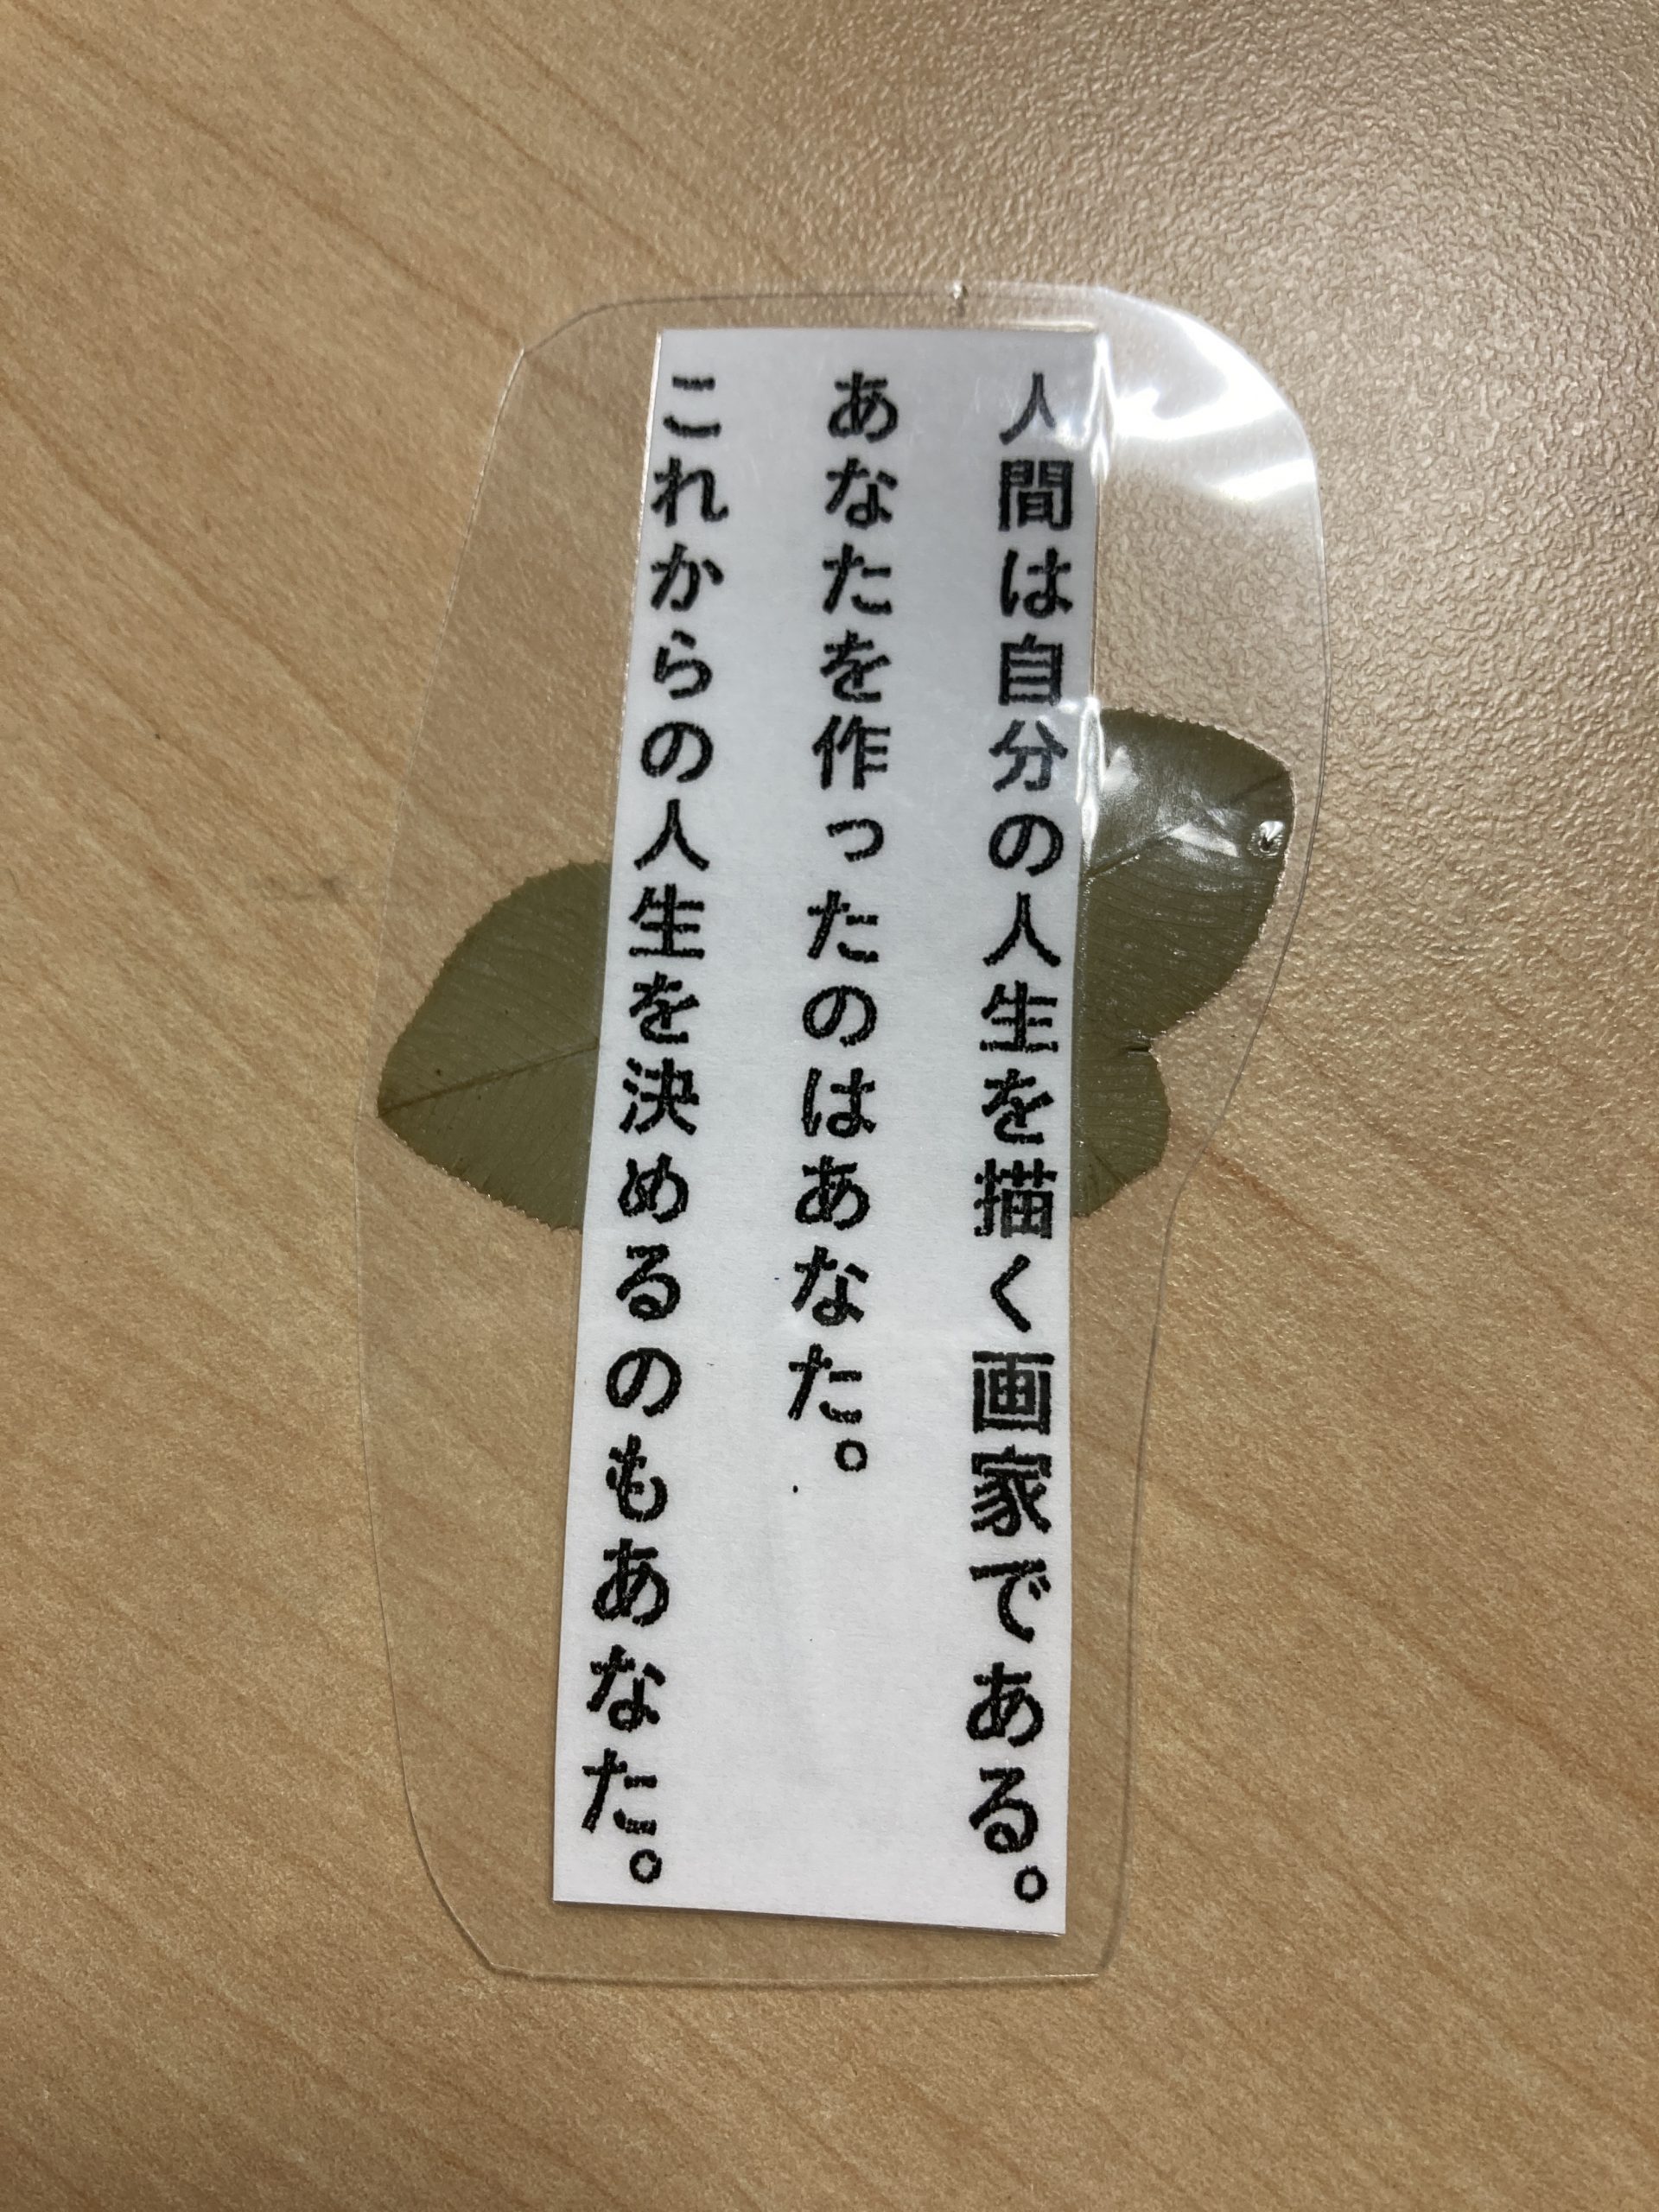 人間は自分の人生を描く画家である。
あなたを作ったのはあなた。
これからの人生を決めるのもあなた。